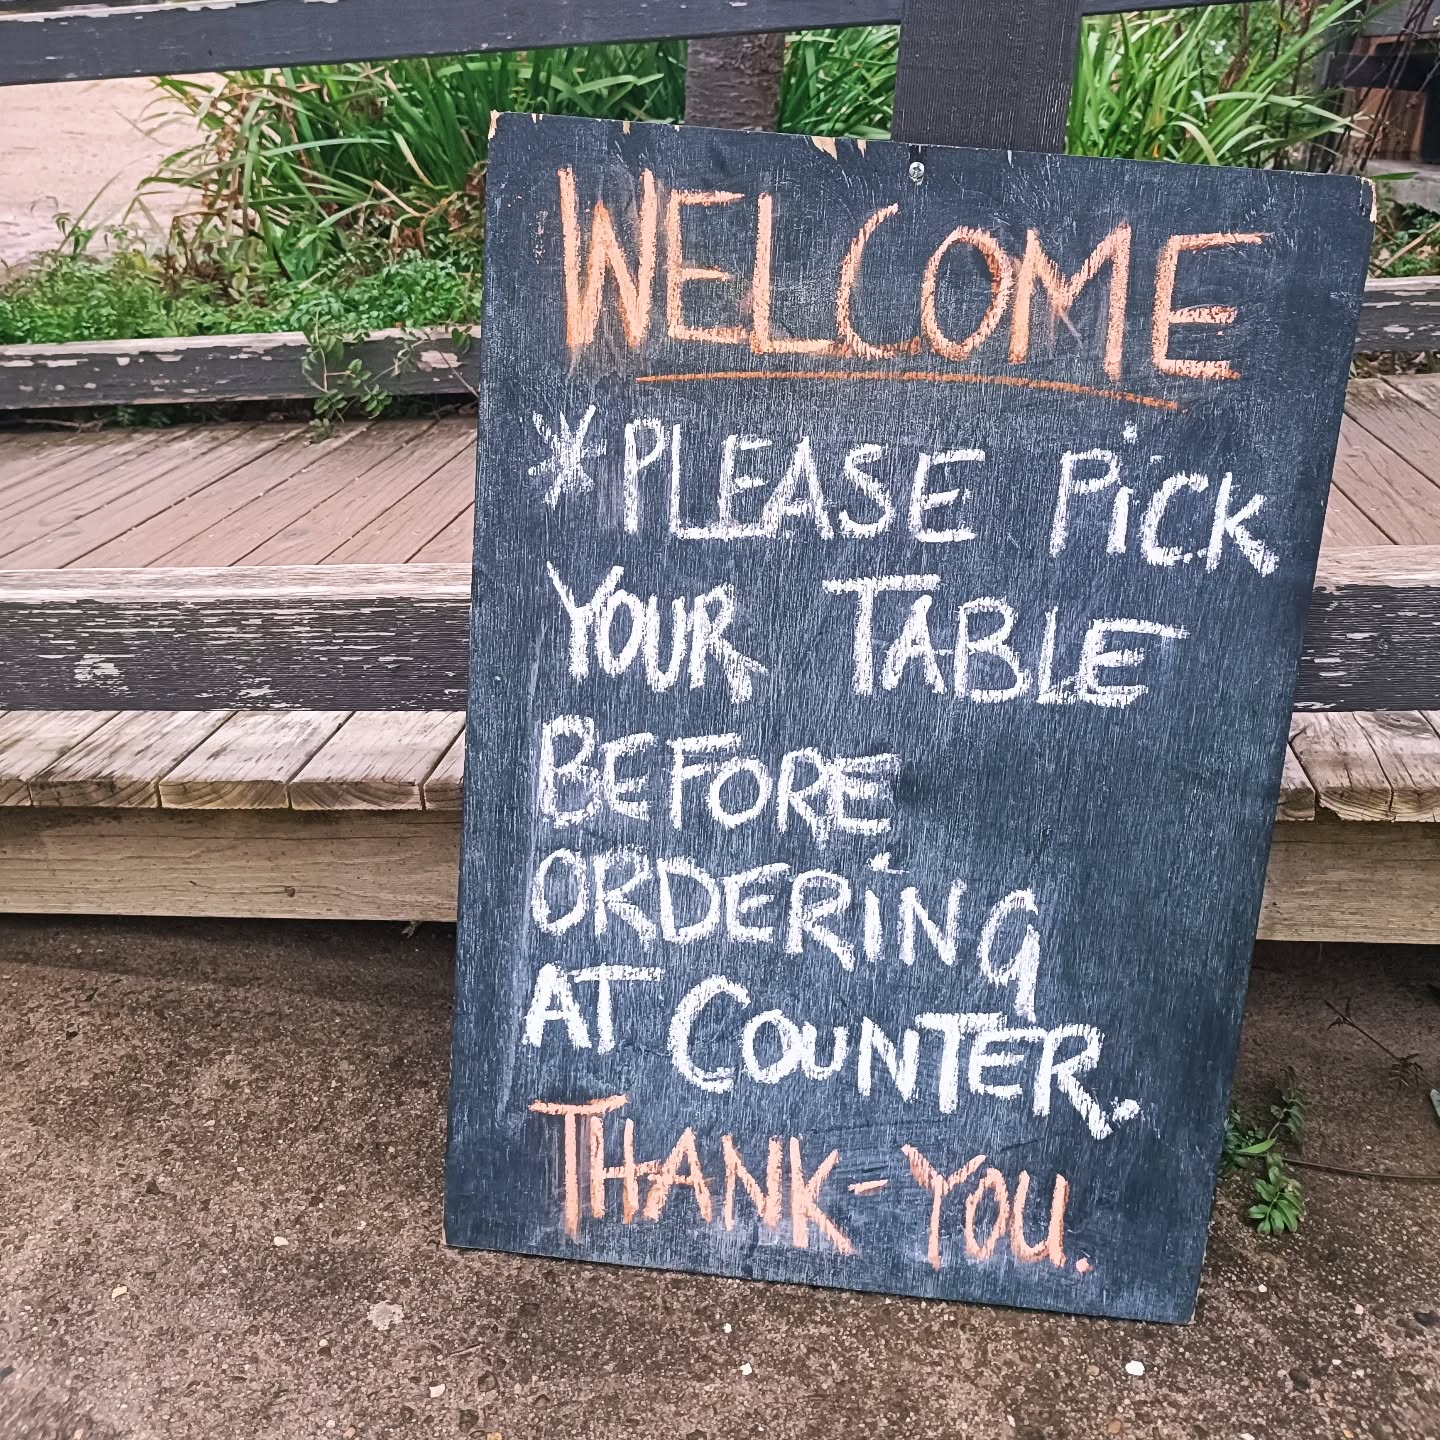 WELCOME
*PLEASE PiCK
YOUR TABLE
BEFORE
ORDERiNG
AT COUNTER.
THANK-YOU.